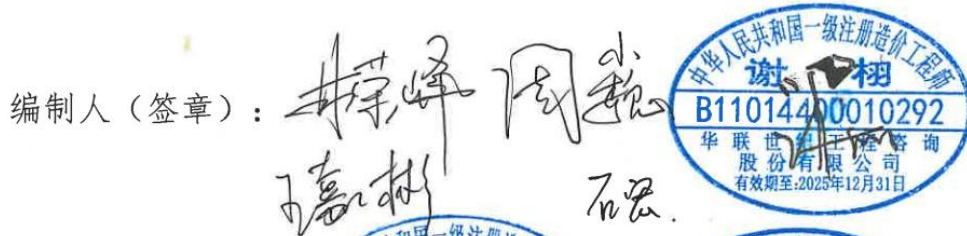 编制人（签章）：
周
王嘉彬
中华人民共和国一级注册造价工程师
谢栩
B11014400010292
华联世纪工程咨询
股份有限公司
有效期至:2025年12月31日
和国一级注册